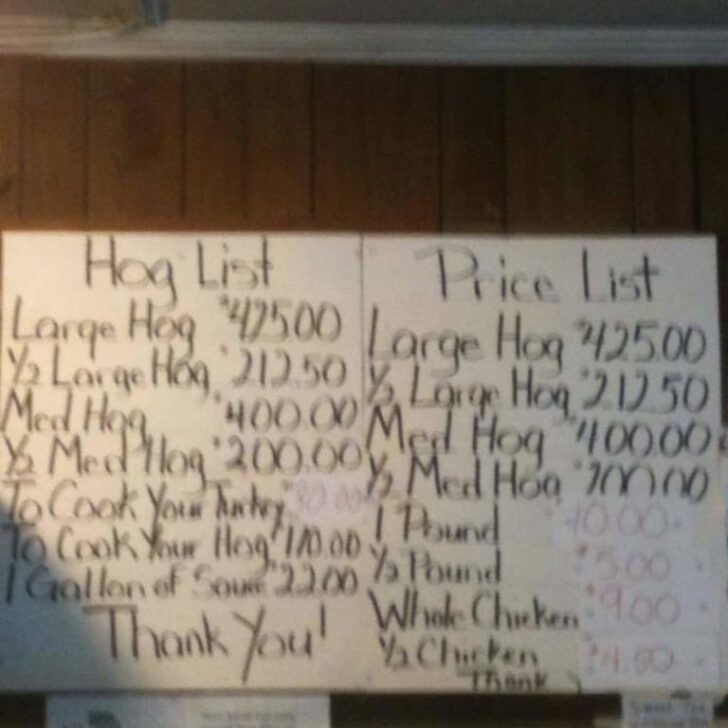 Hog List
Large Hog $425.00
1/2 Large Hog $212.50
Med Hog $400.00
1/2 Med Hog $200.00
To Cook Your Turkey 30.00
To Cook Your Hog $110.00
1 Gallon of Sauce $22.00
Thank You!
Price List
Large Hog $425.00
1/2 Large Hog $212.50
Med Hog $400.00
1/2 Med Hog $200.00
1 Pound 10.00
1/2 Pound $5.00
Whole Chicken $9.00
1/2 Chicken $4.50
Thank